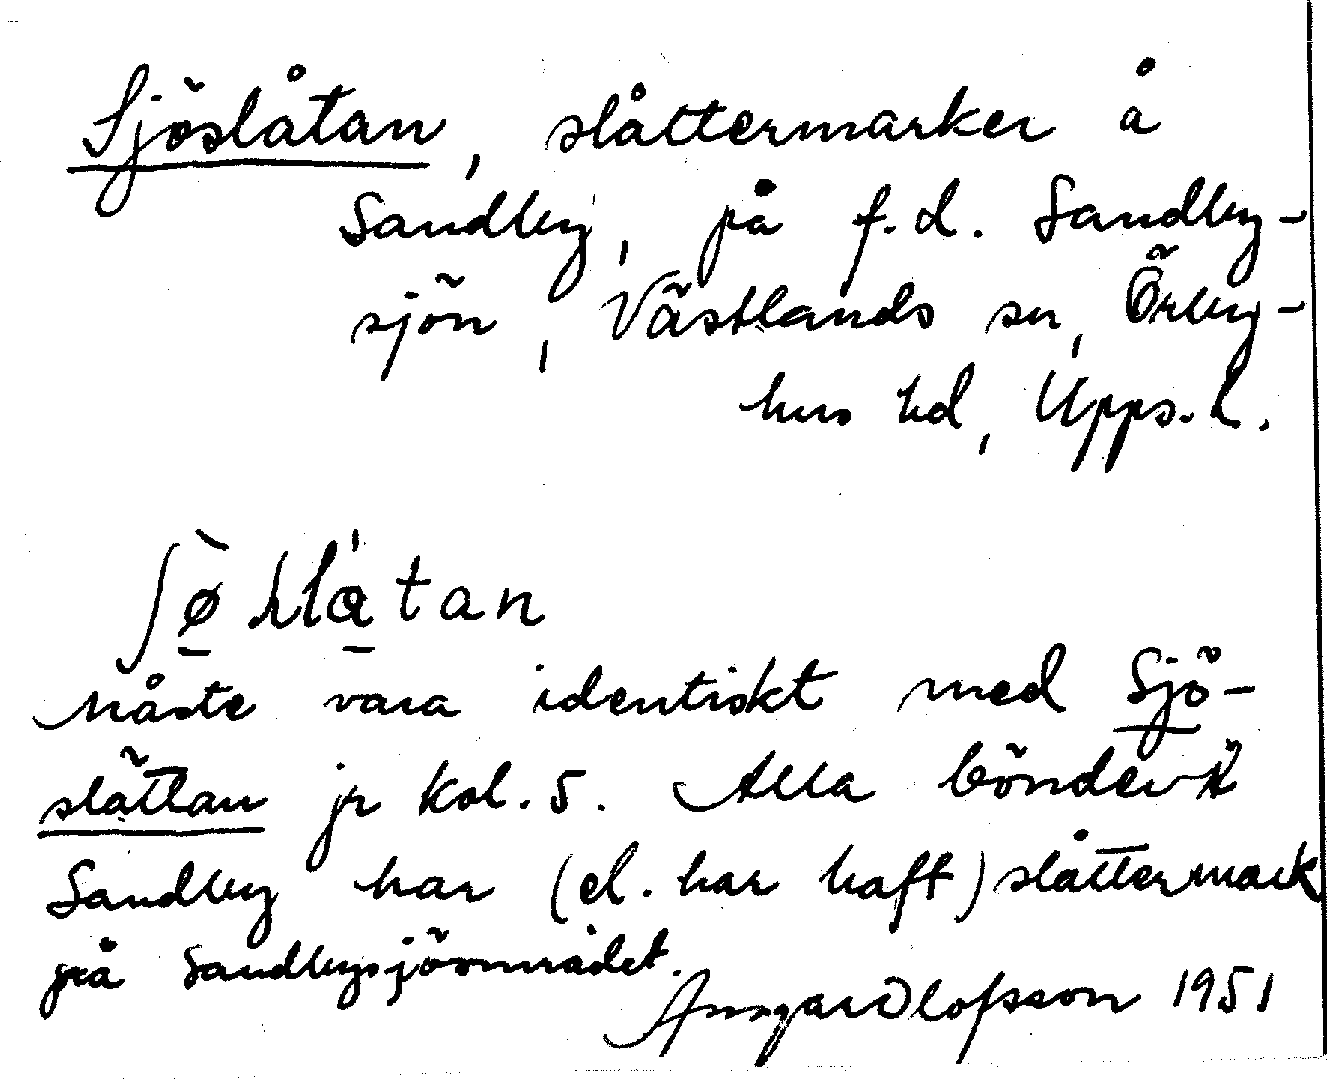 Sjöslåtan, slåttermarker å
Sandby, på f.d. Sandby-
sjön, Västlands sn, Örby-
hus hd, Upps. l.
Måste vara identiskt med Sjö-
slåttan jr kol. 5. Alla bönder i
Sandby har (el. har haft) slåttermark
på Sandbysjöområdet.
Ansgar Olofsson 1951